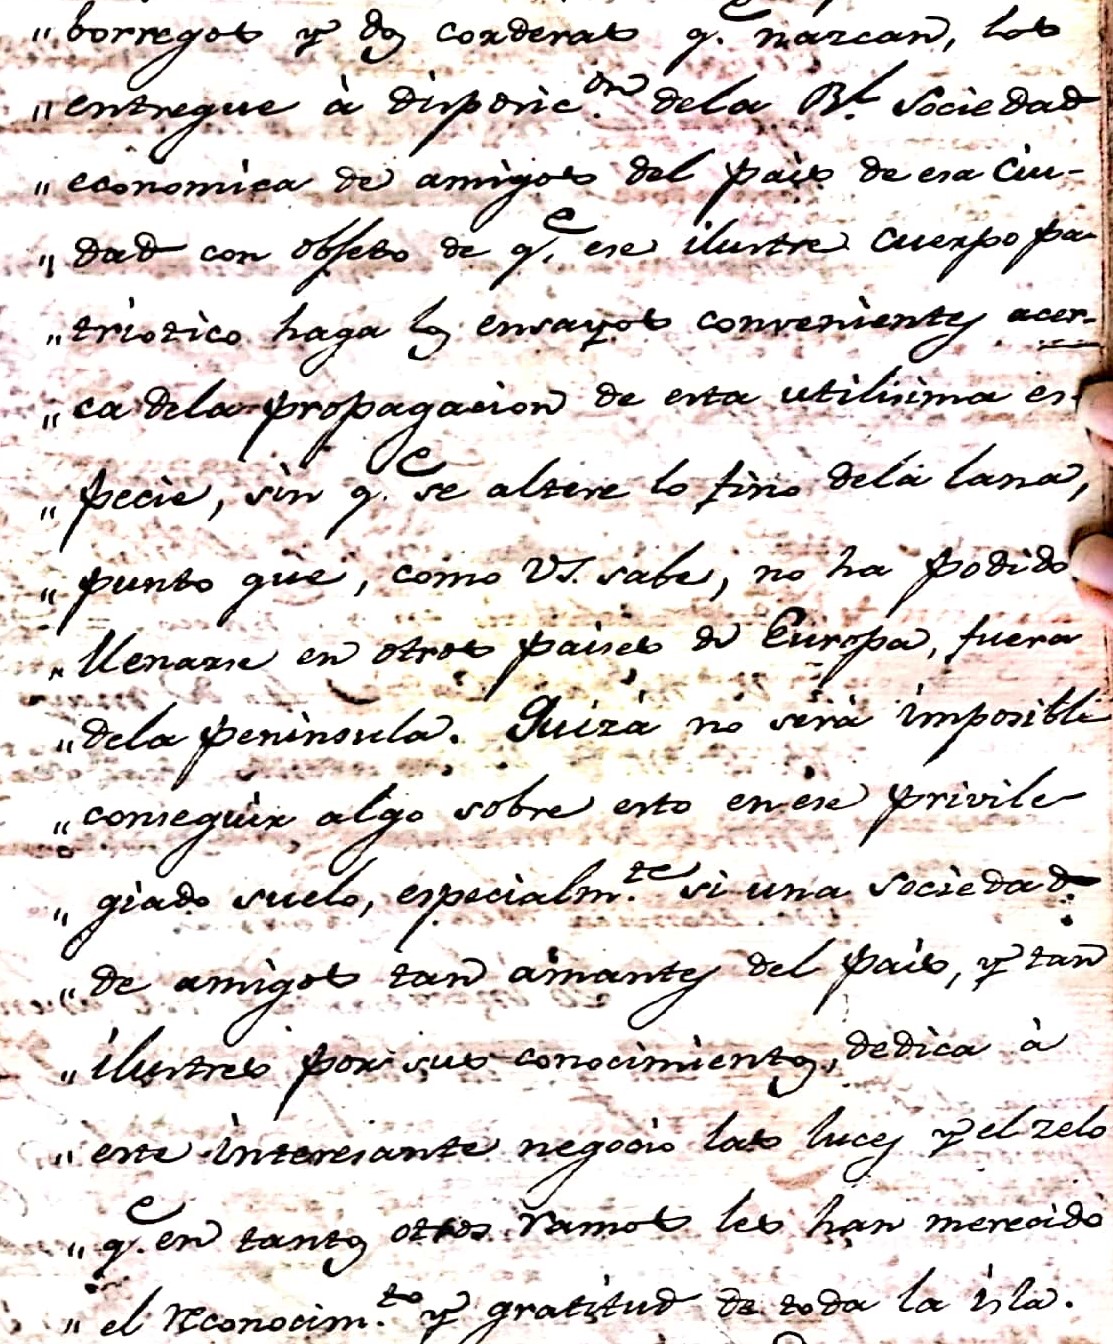 " borregos y dos corderas q.e nazcan, los
" entregue à disposic.on dela Rl. Sociedad
" economica de amigos del pais de esa Ciu-
" dad con objeto de q.e ese ilustre Cuerpo pa-
" triotico haga los ensayos convenientes acer-
" ca dela propagacion de esta utilisima es-
" pecie, sin q.e se altere lo fino dela lana,
" punto que, como VS. sabe, no ha podido
" llenarse en otros paises de Europa, fuera
" dela peninsula. Quizà no serà imposible
" conseguir algo sobre esto en ese privile-
" giado suelo, especialm.te si una sociedad
" de amigos tan amantes del pais, y tan
" ilustres por sus conocimientos, dedica à
" este interesante negocio las luces y el zelo
" q.e en tantos otros ramos les han merecido
" el reconocim.to y gratitud de toda la isla.